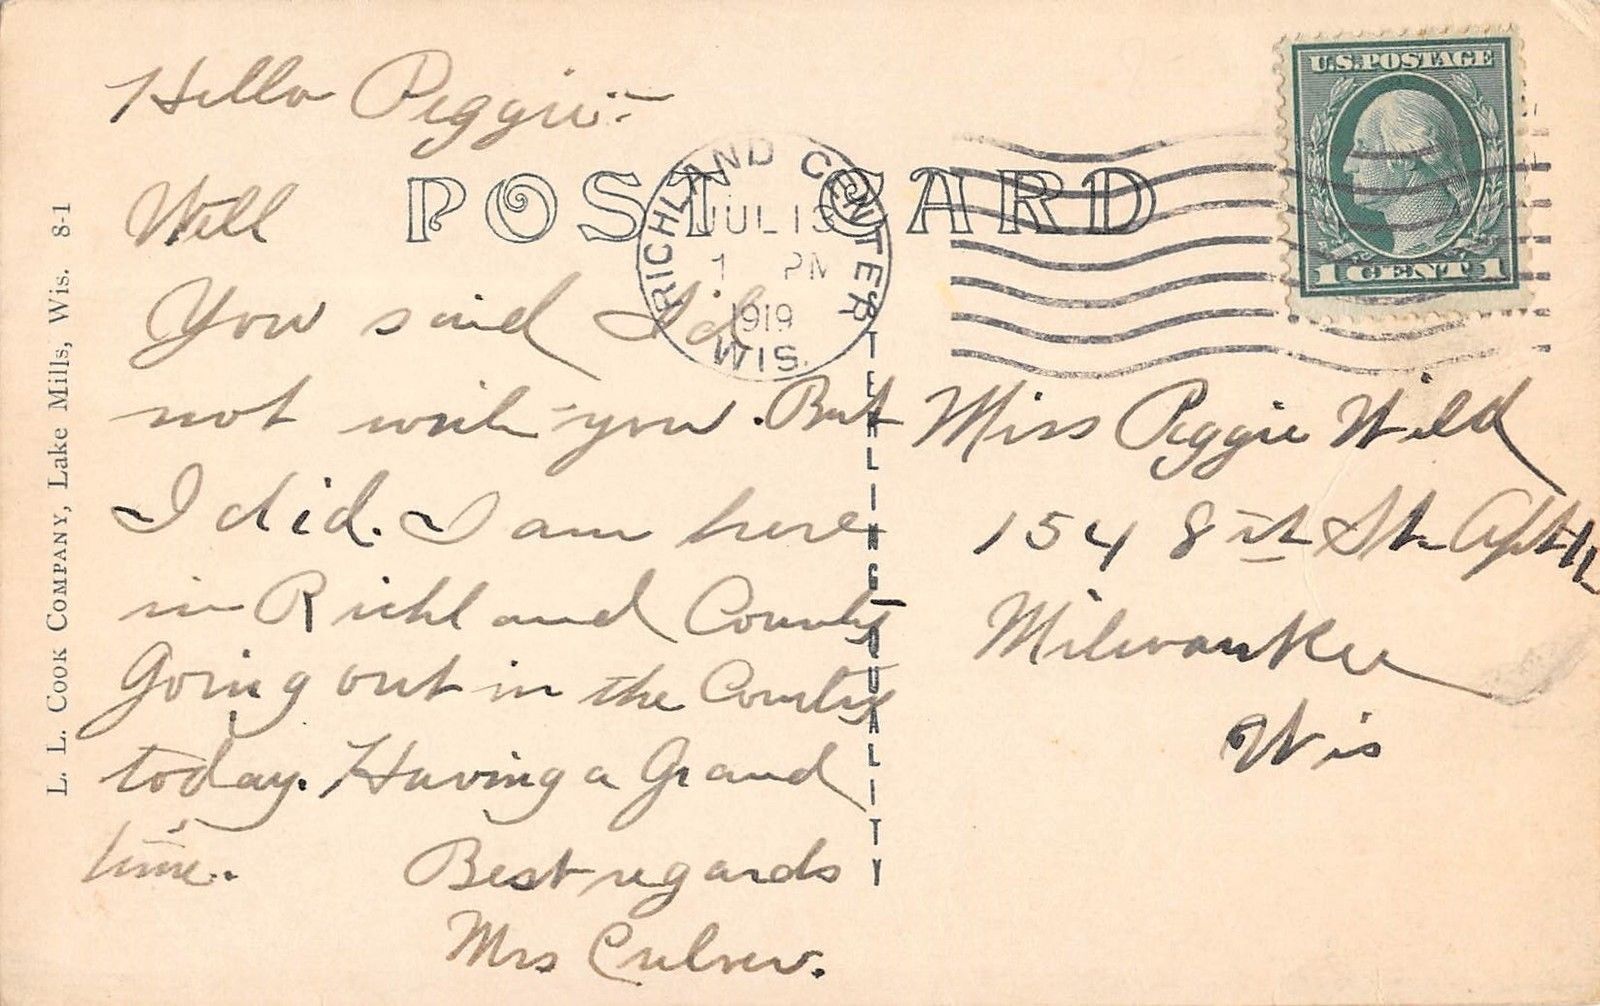 Hello Peggie:-
Well
You said I'd
not writ-you. But
I did. I am here
in Richland County
Going out in the Country
today. Having a Grand
time.
Best regards
Mrs Culver.
POST CARD
RICHLAND CENTER
JUL 13
1 PM
1919
WIS.
U.S. POSTAGE
1 CENT 1
Miss Peggie Wild
154 8th St. Apt
Milwaukee
Wis
STERLING QUALITY
L. L. COOK COMPANY, Lake Mills, Wis. 8-1